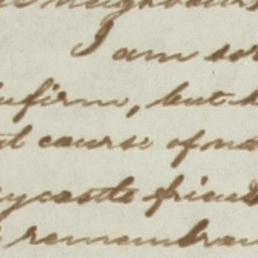 neighbours
I am sor
nfirm, but h
l course of na
ycastle friend
remembran